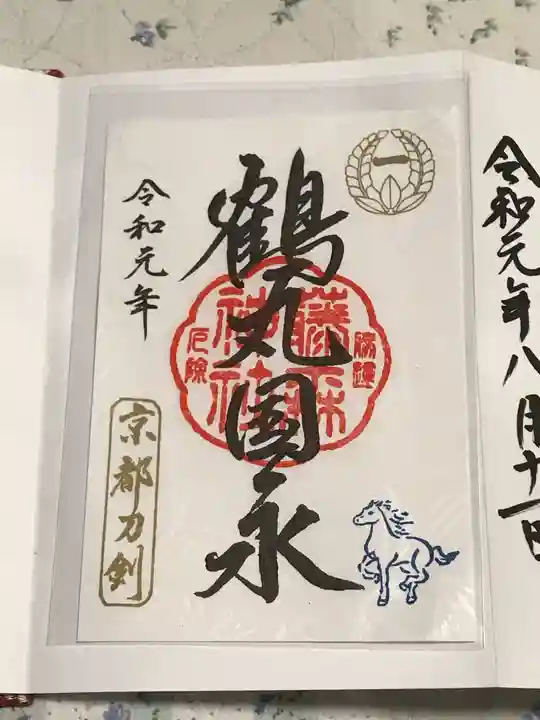 令和元年八月十一日
一
鶴丸国永
藤森
神社
勝運
厄除
令和元年
京都刀剣